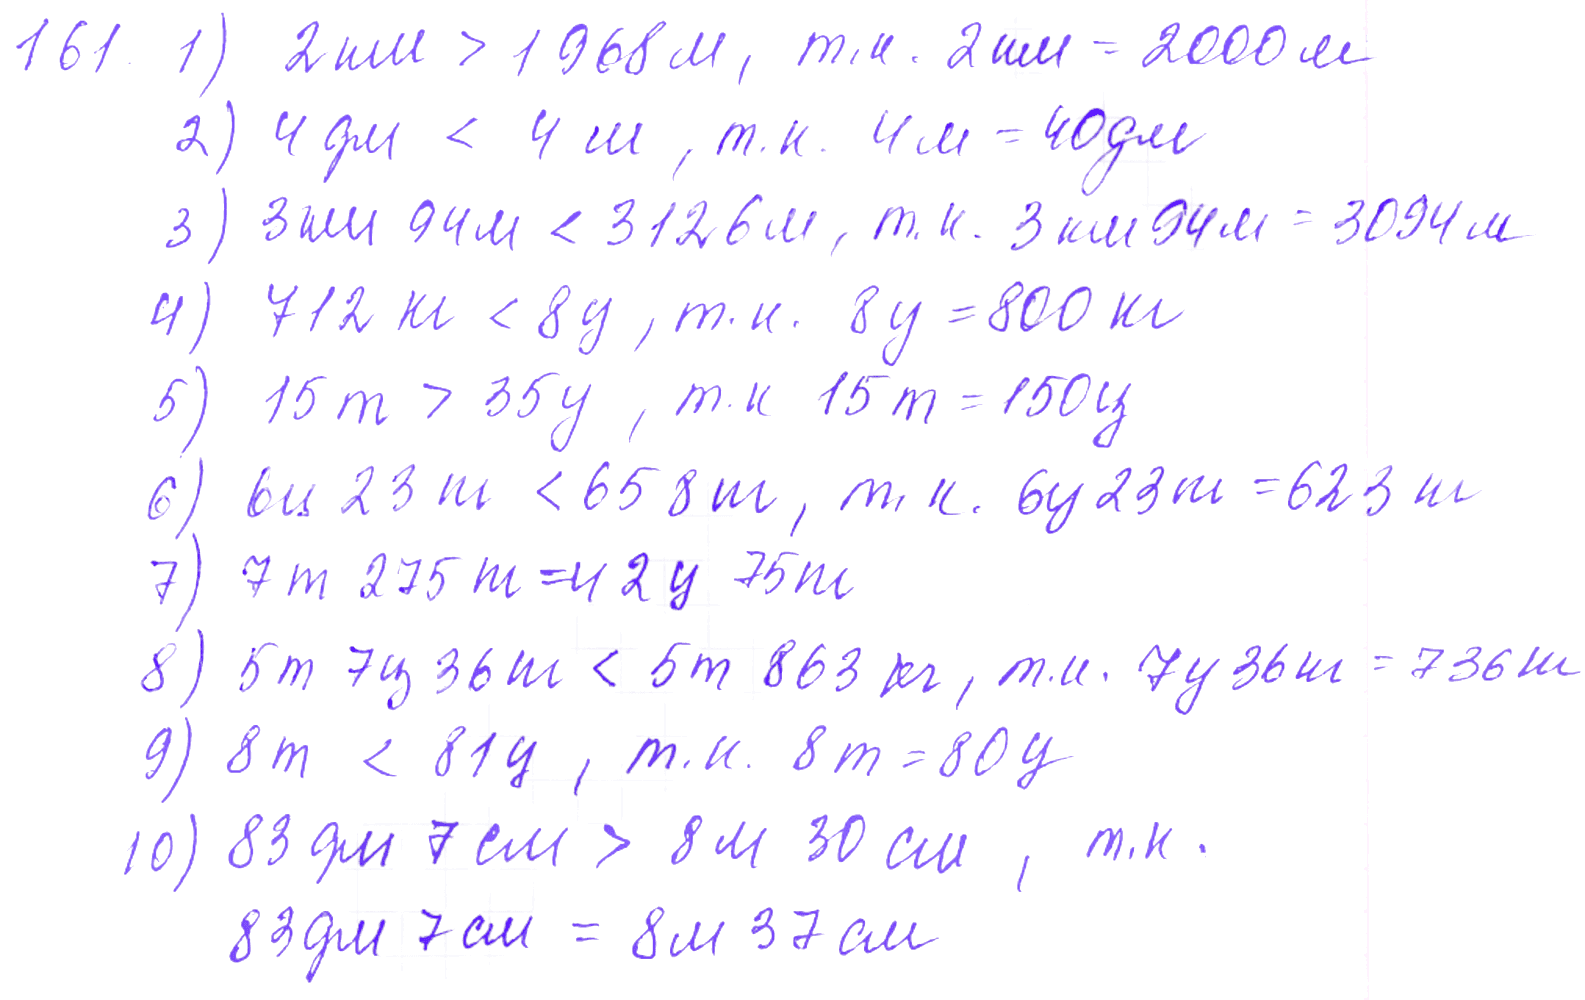 161. 1) 2 км > 1968 м, т.к. 2 км = 2000 м
2) 4 дм < 4 м, т.к. 4 м = 40 дм
3) 3 км 94 м < 3126 м, т.к. 3 км 94 м = 3094 м
4) 712 кг < 8 ц, т.к. 8 ц = 800 кг
5) 15 т > 35 ц, т.к 15 т = 150 ц
6) 6 ц 23 кг < 658 кг, т.к. 6 ц 23 кг = 623 кг
7) 7 т 275 кг = 42 ц 75 кг
8) 5 т 7 ц 36 кг < 5 т 863 кг, т.к. 7 ц 36 кг = 736 кг
9) 8 т < 81 ц, т.к. 8 т = 80 ц
10) 83 дм 7 см > 8 м 30 см, т.к.
83 дм 7 см = 8 м 37 см